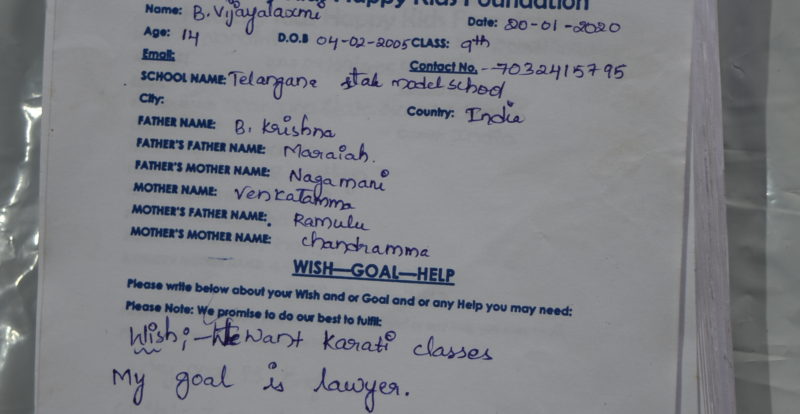 Happy Kids Foundation
Name: B. Vijayalaxmi Date: 20-01-2020
Age: 14 D.O.B 04-02-2005 CLASS: 9th
Email: Contact No. - 7032415795
SCHOOL NAME: Telangana state model school
City: Country: India
FATHER NAME: B. Krishna
FATHER'S FATHER NAME: Maraiah.
FATHER'S MOTHER NAME: Nagamani
MOTHER NAME: Venkatamma
MOTHER'S FATHER NAME: Ramulu
MOTHER'S MOTHER NAME: chandramma
WISH—GOAL—HELP
Please write below about your Wish and or Goal and or any Help you may need:
Please Note: We promise to do our best to fulfil:
Wish:- We want Karati classes
My goal is lawyer.